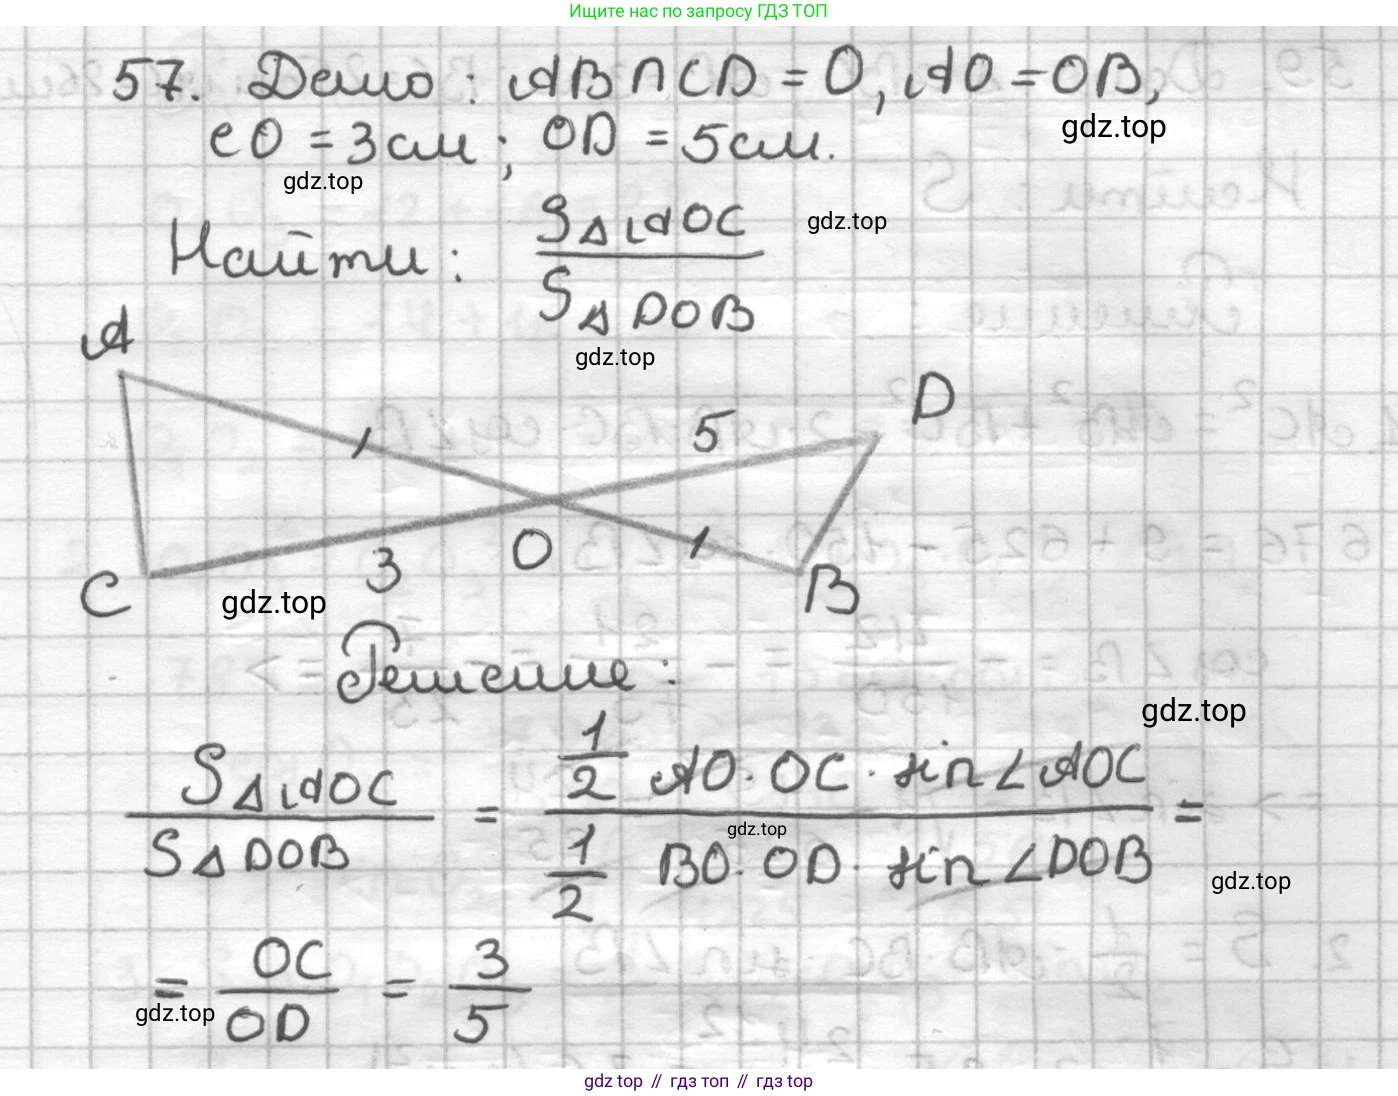 Ищите нас по запросу ГДЗ ТОП
57. Дано: AB ∩ CD = O, AO = OB,
gdz.top
CO = 3 см; OD = 5 см.
gdz.top
Найти: S△AOC / S△DOB
gdz.top
gdz.top
A
5
D
C
3
O
B
gdz.top
Решение:
gdz.top
S△AOC / S△DOB = 1/2 AO · OC · sin∠AOC / 1/2 BO · OD · sin∠DOB =
gdz.top
gdz.top
= OC / OD = 3 / 5
gdz.top
gdz top // гдз топ // гдз top